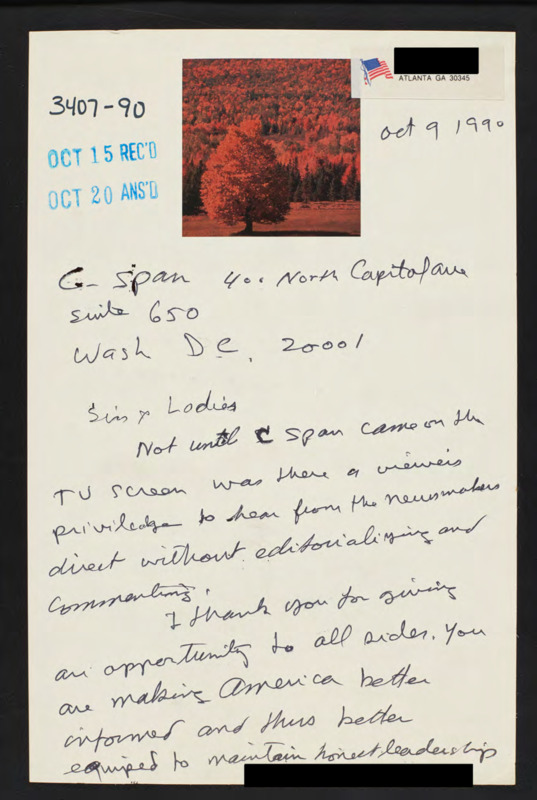 ATLANTA GA 30345
3407-90
oct 9 1990
OCT 15 REC'D
OCT 20 ANS'D
C- Span 400 North Capitol ave
Suite 650
Wash D C, 20001
Sirs & Ladies
Not until C Span came on the
TV screen was there a viewers
priviledge to hear from the newsmakers
direct without editorializing and
commenting.
I thank you for giving
an opportunity to all sides. You
are making America better
informed and thus better
equiped to maintain honest leadership